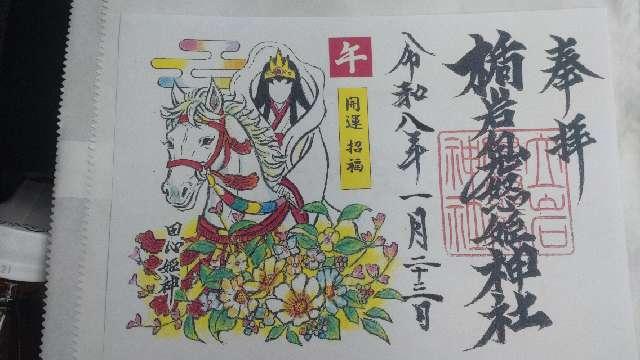 奉拝
楯岩鬼怒姫神社
立岩
神社
令和八年一月二十三日
午
開運招福
田心姫神